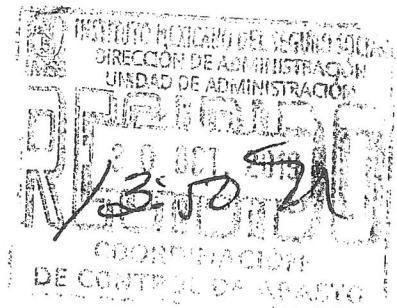 INSTITUTO MEXICANO DEL SEGURO SOCIAL
DIRECCIÓN DE ADMINISTRACIÓN
UNIDAD DE ADMINISTRACIÓN
RECIBIDO
20 OCT
13:50
COORDINACIÓN
DE CONTROL DE ABASTO